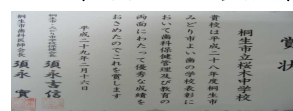 賞状
桐生市立桜木中学校
貴校は平成二十八年度桐生市
みどり市よい歯の学校表彰に
おいて歯科保健管理及び教育の
両面にわたって優秀な成績を
おさめたのでこれを賞します
平成二十九年二月十六日
須永吉信
桐生市歯科医師会長
須永實